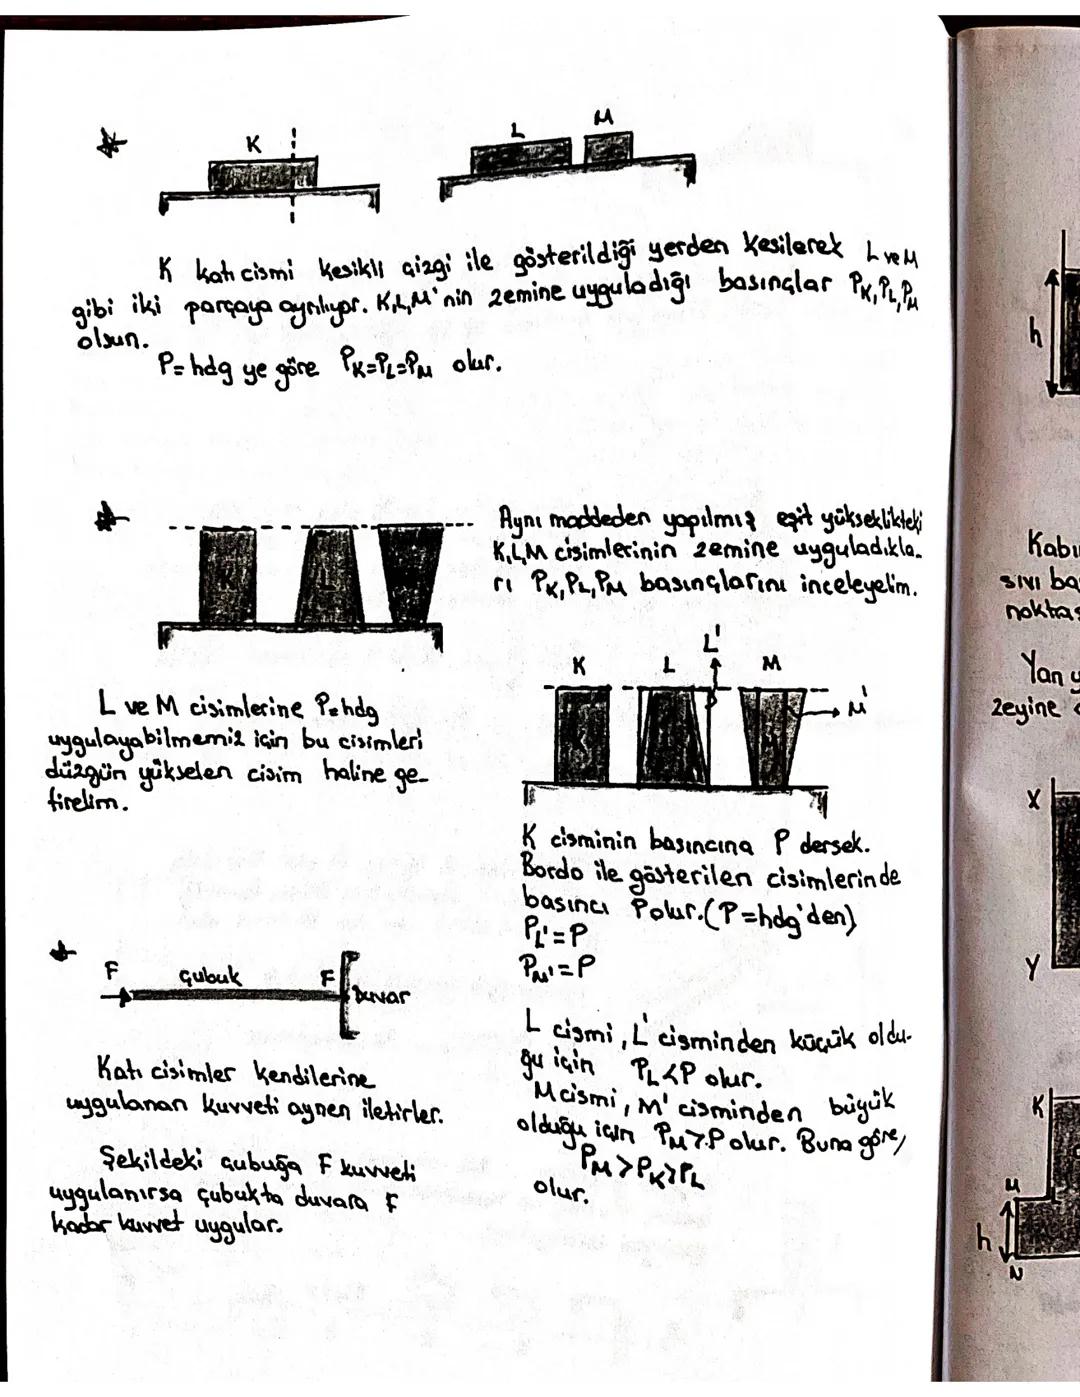 K
L
M
K katı cismi kesikli çizgi ile gösterildiği yerden kesilerek L ve M
gibi iki parçaya ayrılıyor. K,L,M'nin zemine uyguladığı basınçlar PK,PL,PM
olsun.
P=hdg ye göre PK=PL=PM olur.
Aynı maddeden yapılmış eşit yükseklikteki
K,L,M cisimlerinin zemine uyguladıkla-
rı PK,PL,PM basınçlarını inceleyelim.
K
L
L ve M cisimlerine P=hdg
uygulayabilmemiz için bu cisimleri
düzgün yükselen cisim haline ge-
tirelim.
K L L' M
M'
K cisminin basıncına P dersek.
Bordo ile gösterilen cisimlerinde
basıncı P olur.(P=hdg'den)
PL'=P
PM'=P
L cismi, L' cisminden küçük oldu-
ğu için PL<P olur.
M cismi, M' cisminden büyük
olduğu için PM>P olur. Buna göre,
PM>PK>PL
olur.
F çubuk F
Duvar
Katı cisimler kendilerine
uygulanan kuvveti aynen iletirler.
Şekildeki çubuğa F kuvveti
uygulanırsa çubukta duvara F
kadar kuvvet uygular.
h
sıvı
Yan
zeyine
X
Y
K
M
h
N